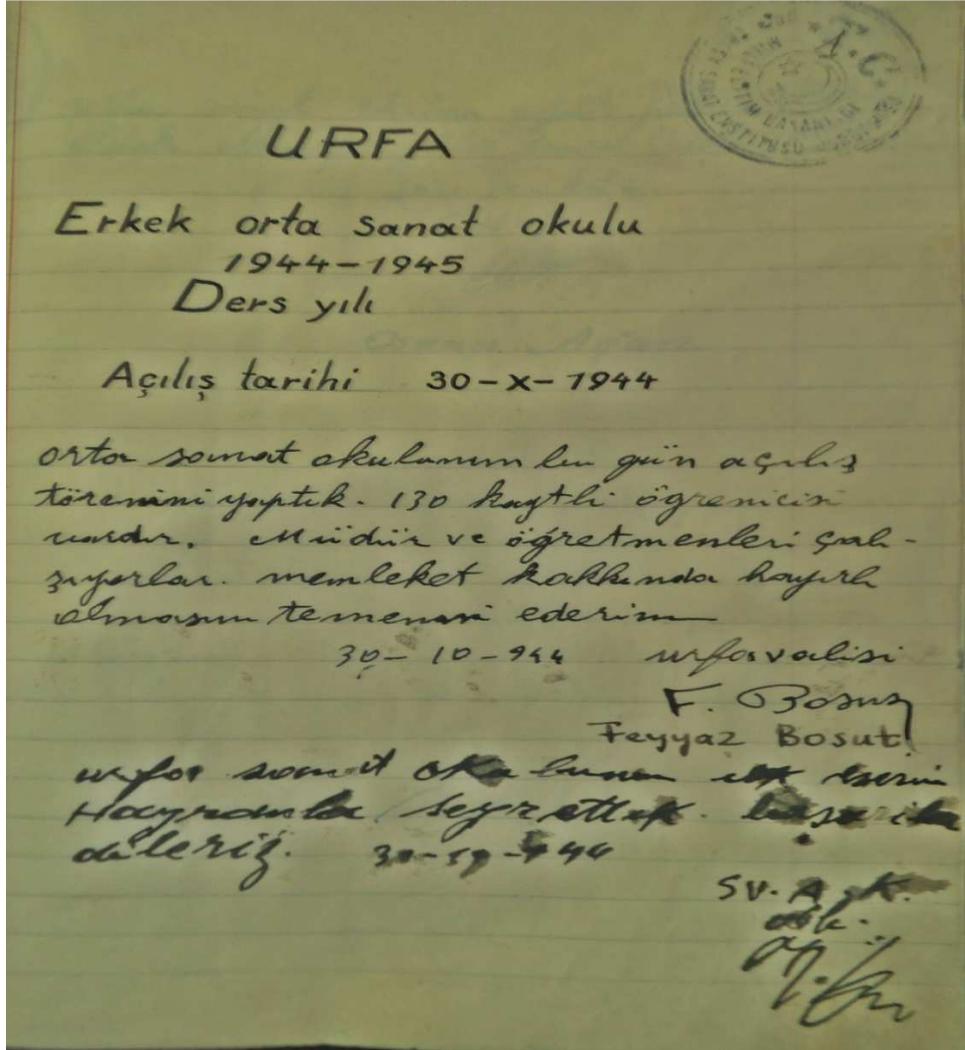 T.C.
URFA
Erkek orta sanat okulu
1944-1945
Ders yılı
Açılış tarihi 30-X-1944
orta sanat okulunun bu gün açılış
törenini yaptık. 130 kaytli öğrenicisi
vardır. Müdür ve öğretmenleri çalı-
şıyorlar. memleket hakkında hayırlı
olmasını temenni ederim
30-10-944 urfa valisi
F. Bosut
Feyyaz Bosut
urfa sanat okulunun ilk eserini
Hayranla seyrettik. başarılar
dileriz. 30-10-944
SV.